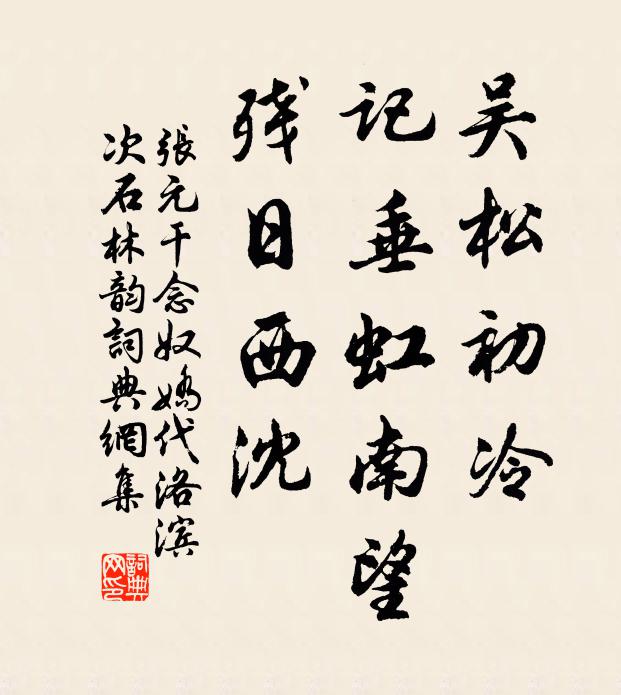 吴松初冷
记垂虹南望
残日西沈
張元干念奴嬌代洛滨
次石林韵詞典網集
詞典
网印